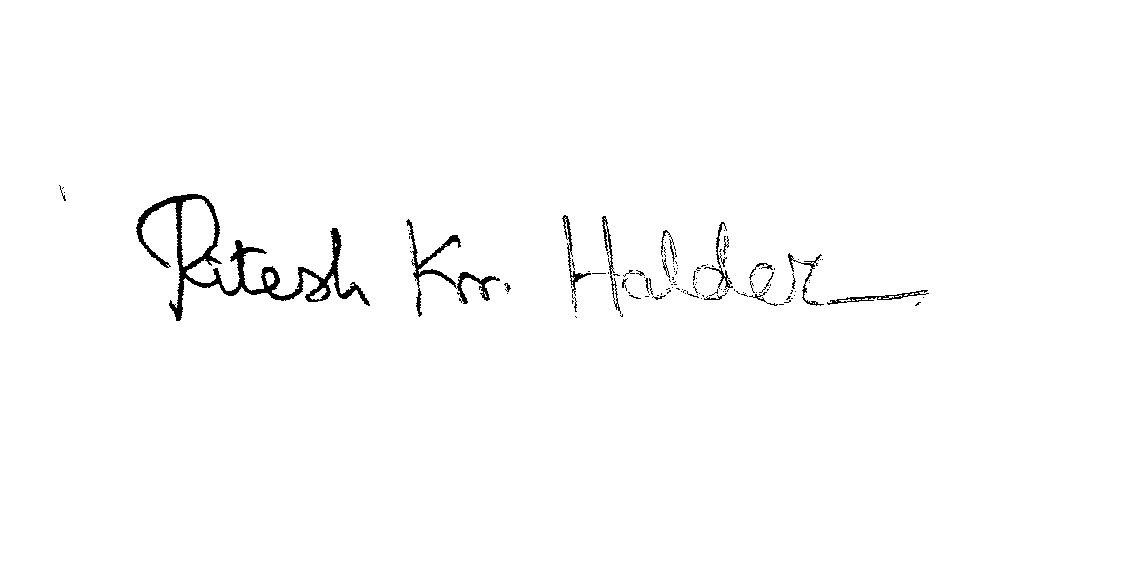 Ritesh Kr. Halder